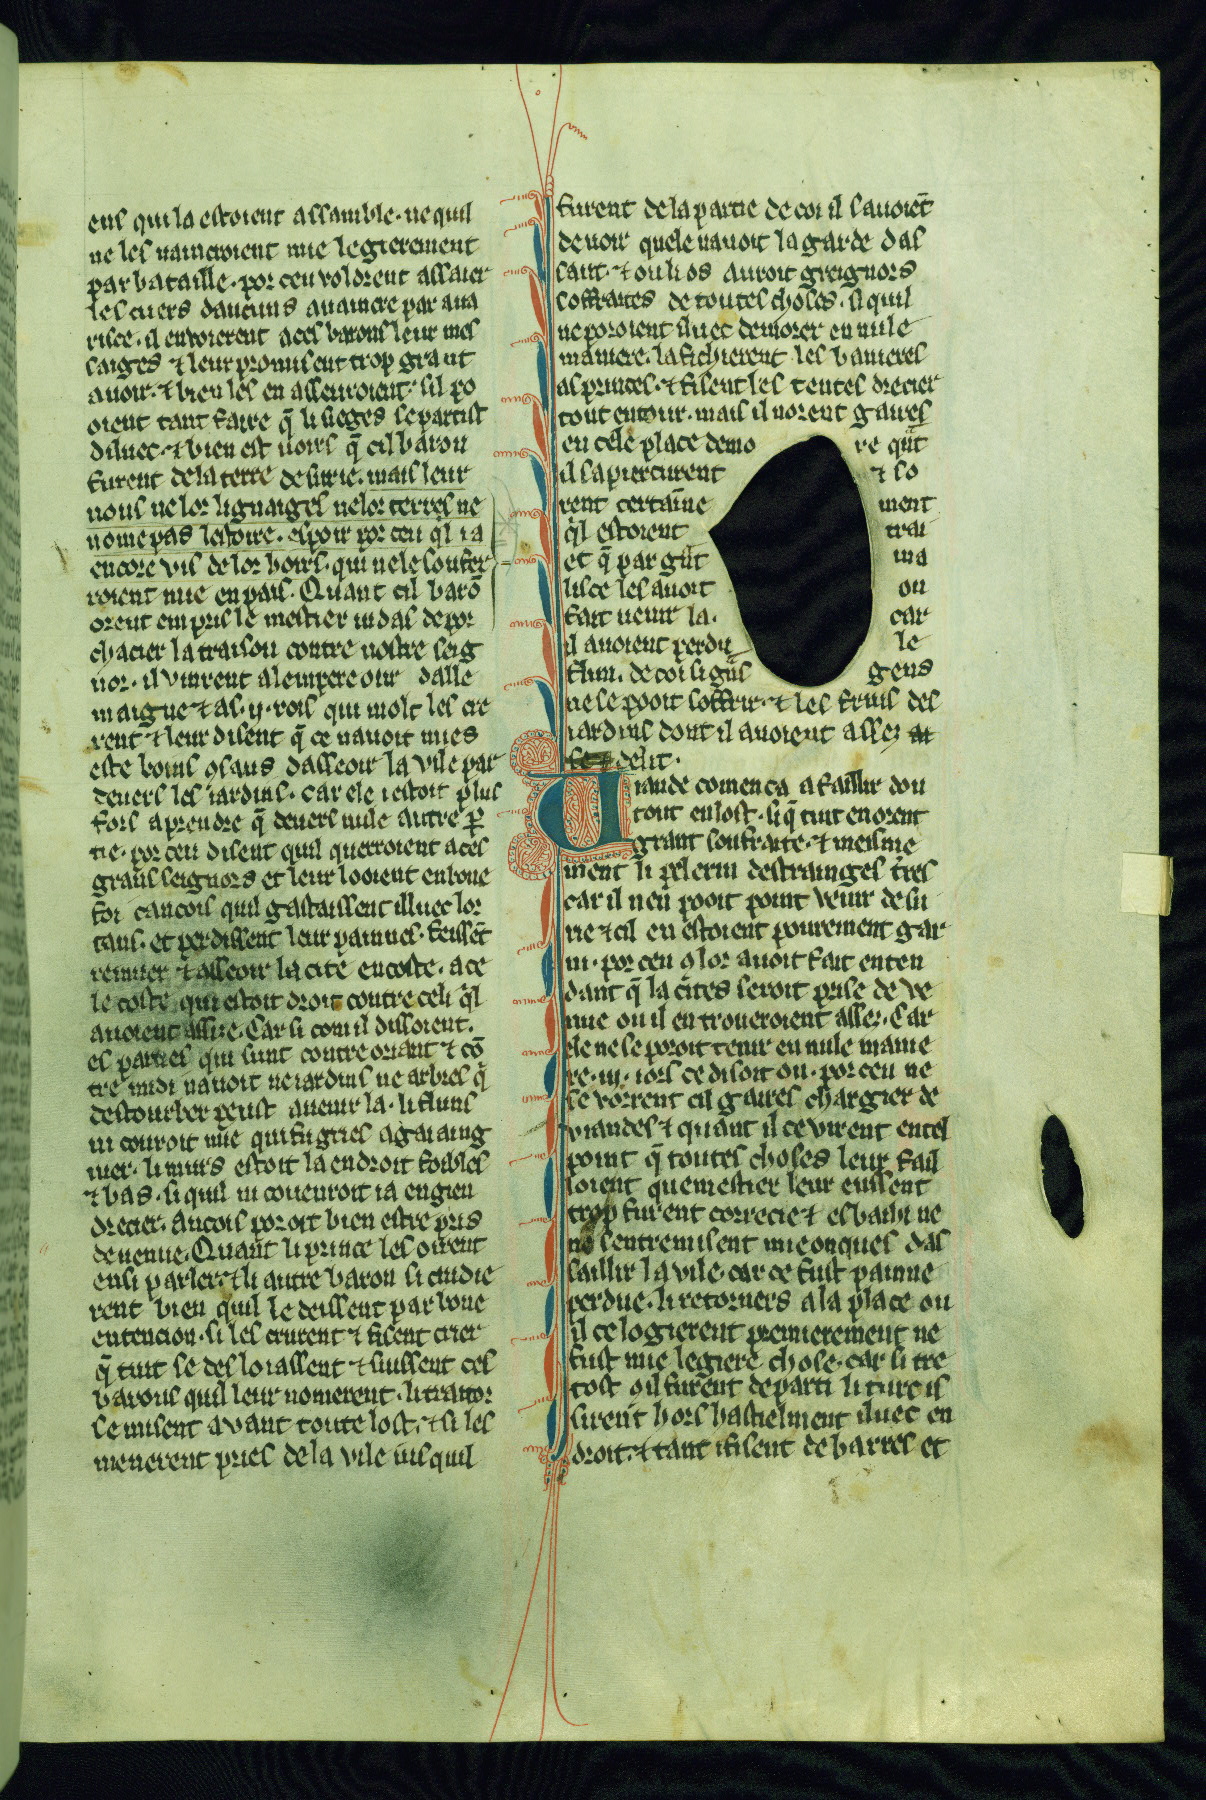 ens qui la estoient assamble. ne quil
ne les uaincroient mie legierement
par bataille. por ceu volorent assaier
les cuers daucuns auaincre par aua
risce. il enuoierent aces barons leur mes
saiges ⁊ leur promisent trop grant
auoir. ⁊ bien les en asseuroient. sil po
oient tant faire q̄ li sieges se partist
diluec. ⁊ bien est uoirs q̄ cil baron
furent de la terre de surie. mais leur
nous ne lor lignaiges ne lor terres ne
nome pas lestoire. espoir por ceu ql ia
encore vis de lor hoirs. qui ne le soufer
roient mie en pais. Quant cil barō
orent empris le mestier iudas de por
chacier la traison contre nostre seig
nor. il vinrent a lempereour dalle
maigne ⁊ as .ij. rois qui molt les cre
rent ⁊ leur disent q̄ ce nauoit mies
este boins ꝯsaus dasseoir la vile par
deuers les iardins. car ele i estoit plus
fors a prendre q̄ deuers nule autre ꝑ
tie. por ceu disent quil querroient aces
grans seignors et leur looient en bone
foi cancois quil gastaissent illuec lor
tans. et perdissent leur painnes. feissēt
remuer ⁊ asseoir la cite encoste. a ce
le coste qui estoit droit contre celi q̄l
auoient assise. Car si com il dissoient.
es parties qui sunt contre oriant ⁊ cō
tre midi nauoit ne iardins ne arbres q̄
destourber peust auenir la. li fluns
ni couroit mie qui fu gries a gaaing
nier. li murs estoit la endroit foibles
⁊ bas. si quil ni couenroit ia engien
drecier. ancois poroit bien estre pris
de uenue. Quant li prince les oirent
ensi parler ⁊ li autre baron si cuidie
rent bien quil le deissent par bone
entencion. si les crurent ⁊ fisent crier
q̄ tuit se desloiassent ⁊ siuissent ces
barons quil leur nomerent. li traitor
se misent auant toute lost. ⁊ si les
menerent pries de la vile iusquil
furent de la partie de coi il sauoiēt
de uoir quele nauoit la garde das
saut. ⁊ ou li os auroit greignors
soffraites de toutes choses. si quil
ne poroient iluec demorer en nule
maniere. la fichierent les banieres
as princes. ⁊ fisent les tentes drecier
tout entour. mais il norent gaires
en cele place demo re qūt
il sapiercurent ⁊ so
rent certaīne ment
q̄l estoient trai
et q̄ par gūt ma
lisce les auoit on
fait uenir la. car
il auoient perdu le
flun. de coi si gūs gens
ne se pooit soffrir. ⁊ les fruis des
iardins dont il auoient assez
se ⁊ delit.
Uiande comenca a faillir dou
tout en lost. si q̄ tuit en orent
grant soufraite. ⁊ meisme
ment li pelerin destrainges t̄res
car il nen pooit point venir de su
rie ⁊ cil en estoient pourement gar
ni. por ceu ꝯ lor auoit fait enten
dant q̄ la cites seroit prise de ve
nue ou il en troueroient assez. Car
ele ne se poroit tenir en nule manie
re .iij. iors ce disoit on. por ceu ne
se vorrent cil gaires chargier de
viandes ⁊ quant il ce virent en tel
point q̄ toutes choses leur fail
loient que mestier leur euissent
trop furent correcie ⁊ esbahi ne
ne sentremisent mie onques das
saillir la vile. car ce fust painne
perdue. li retorners a la place ou
il ce logierent premierement ne
fust mie legiere chose. car si tre
tost ꝯ il furent departi li turc is
sirent hors hastielment iluec en
droit. ⁊ tant i fisent de barres et